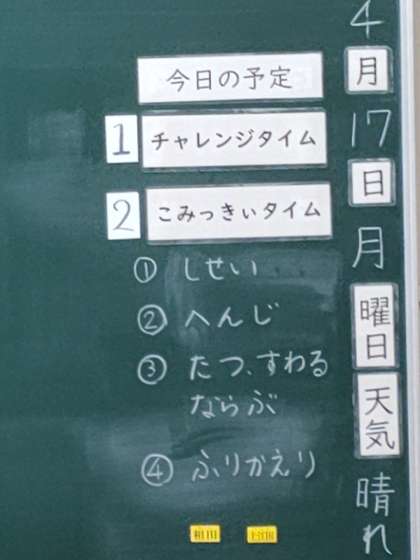 4月17日月曜日天気晴れ
今日の予定
1 チャレンジタイム
2 こみっきぃタイム
① しせい
② へんじ
③ たつ、すわる
ならぶ
④ ふりかえり